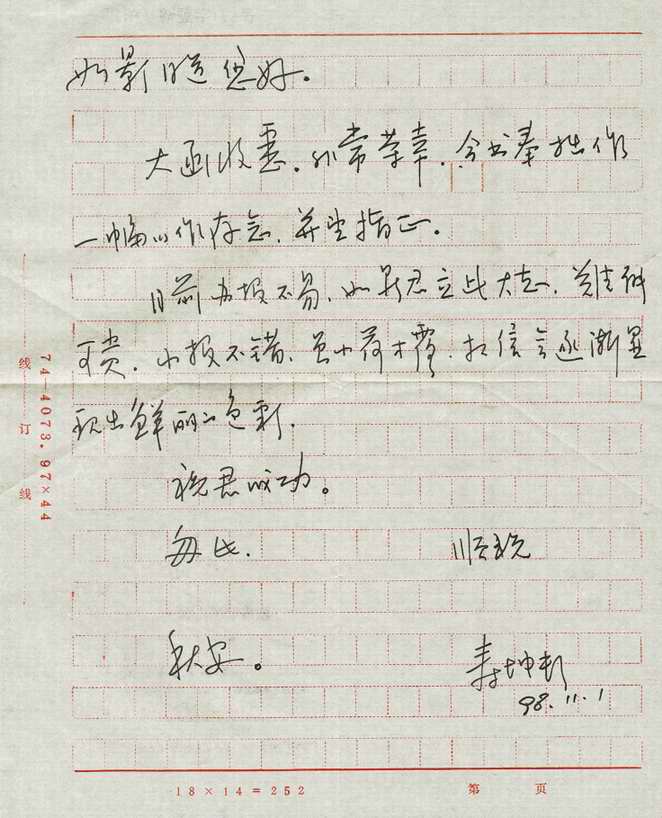 如影 您好。
大函收悉。非常荣幸，今书奉拙作
一幅以作存念，并望指正。
目前办报不易，如影君立此大志，
可贵。小报不错，虽小荷才露，相信会逐渐显
现出鲜丽的色彩。
祝君成功。
匆此。 顺祝
秋安。 寿坤
98.11.1
线 订 线
74-4073.97×44
18×14=252 第 页